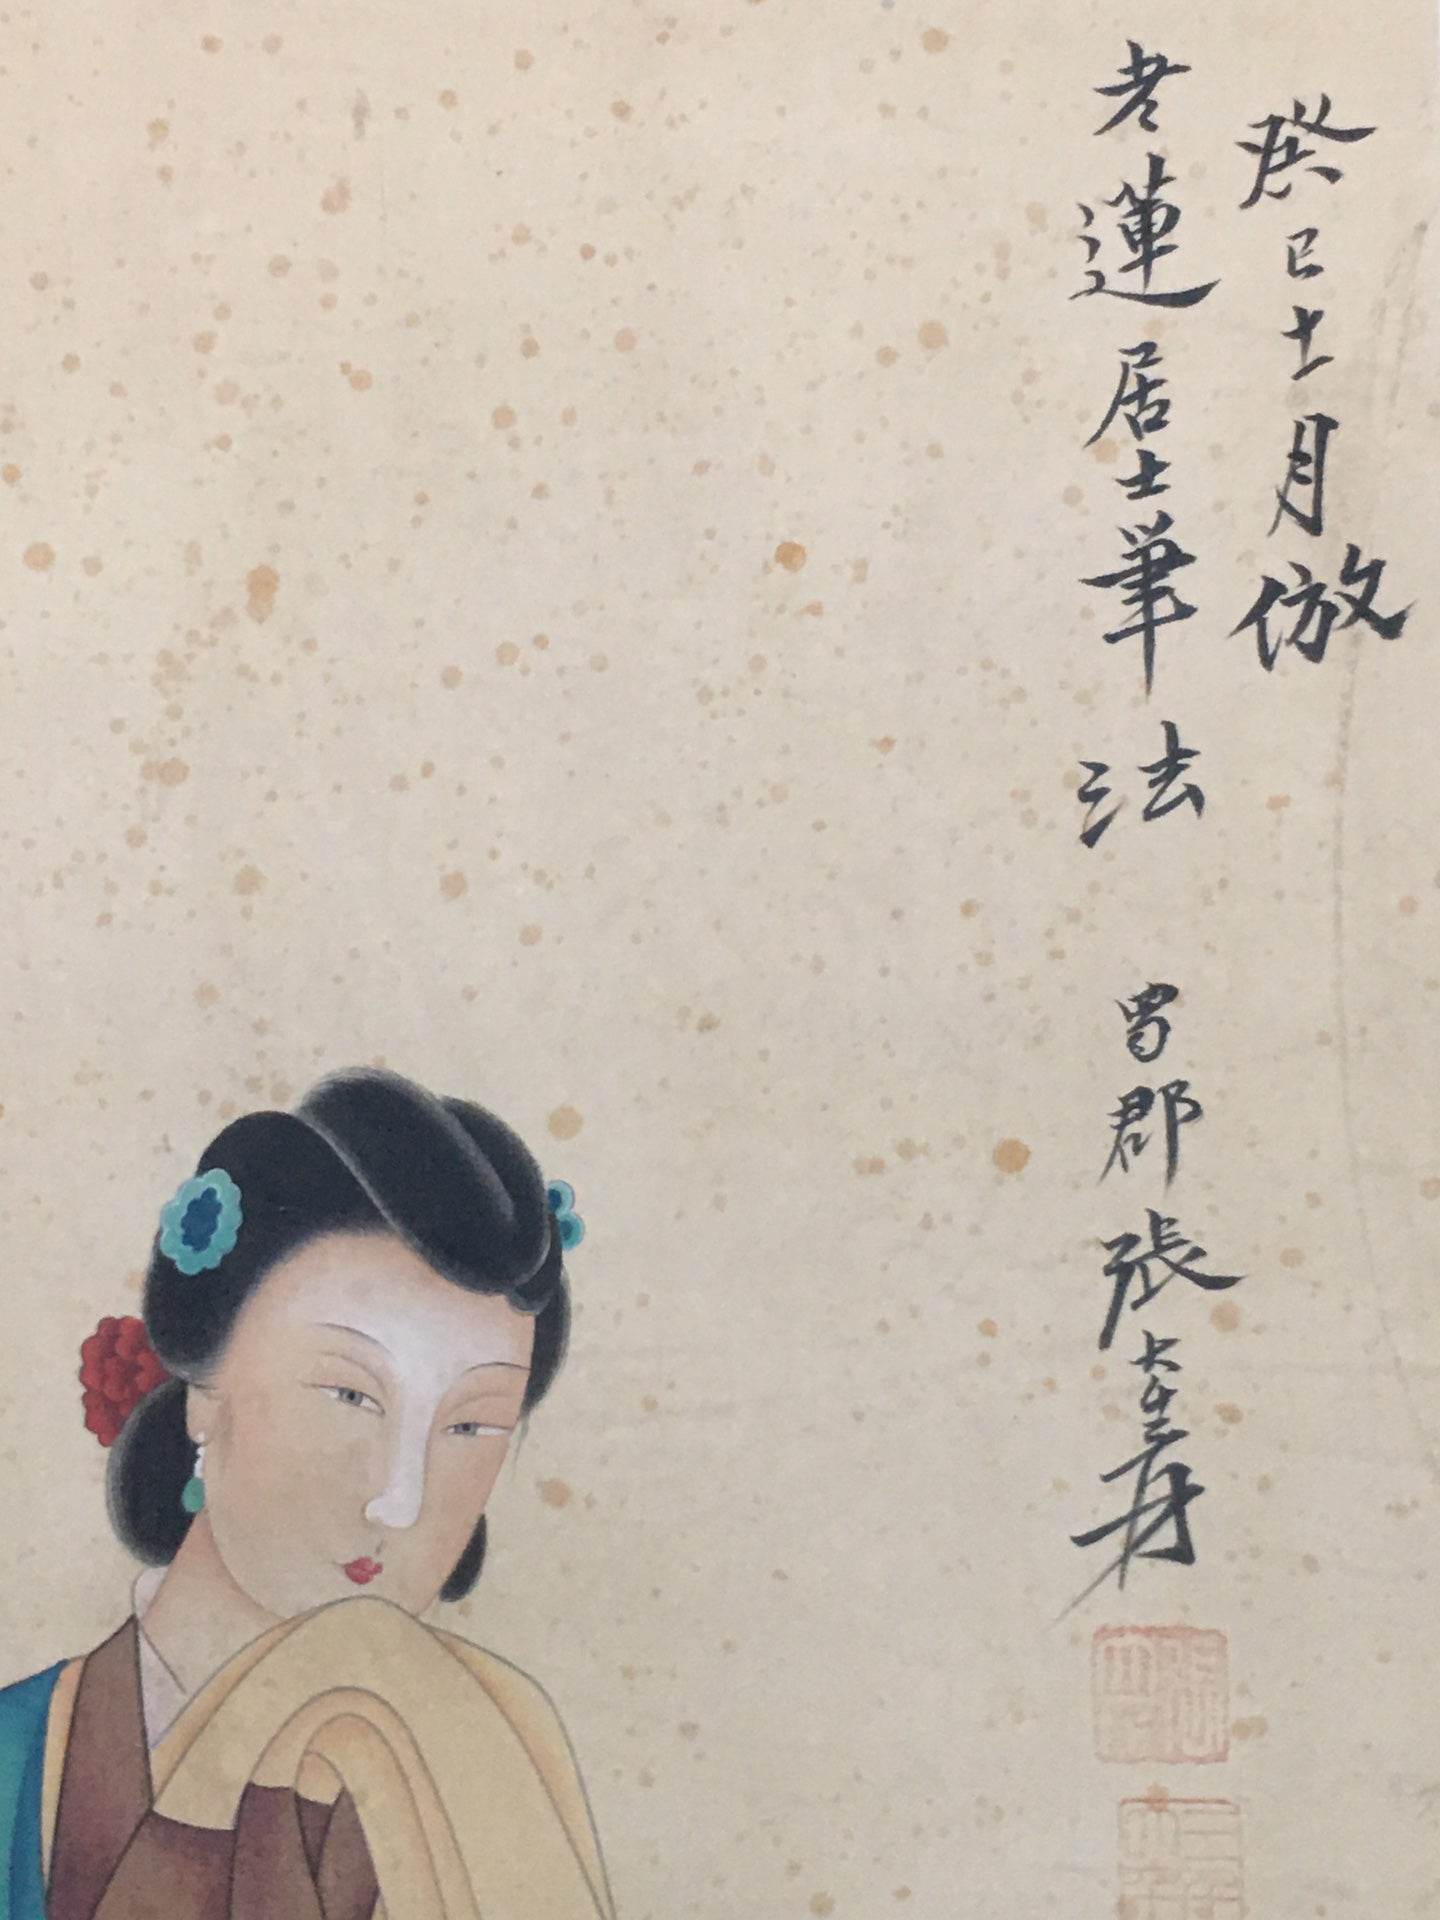 癸巳十一月倣
老蓮居士筆法 蜀郡張大千爰